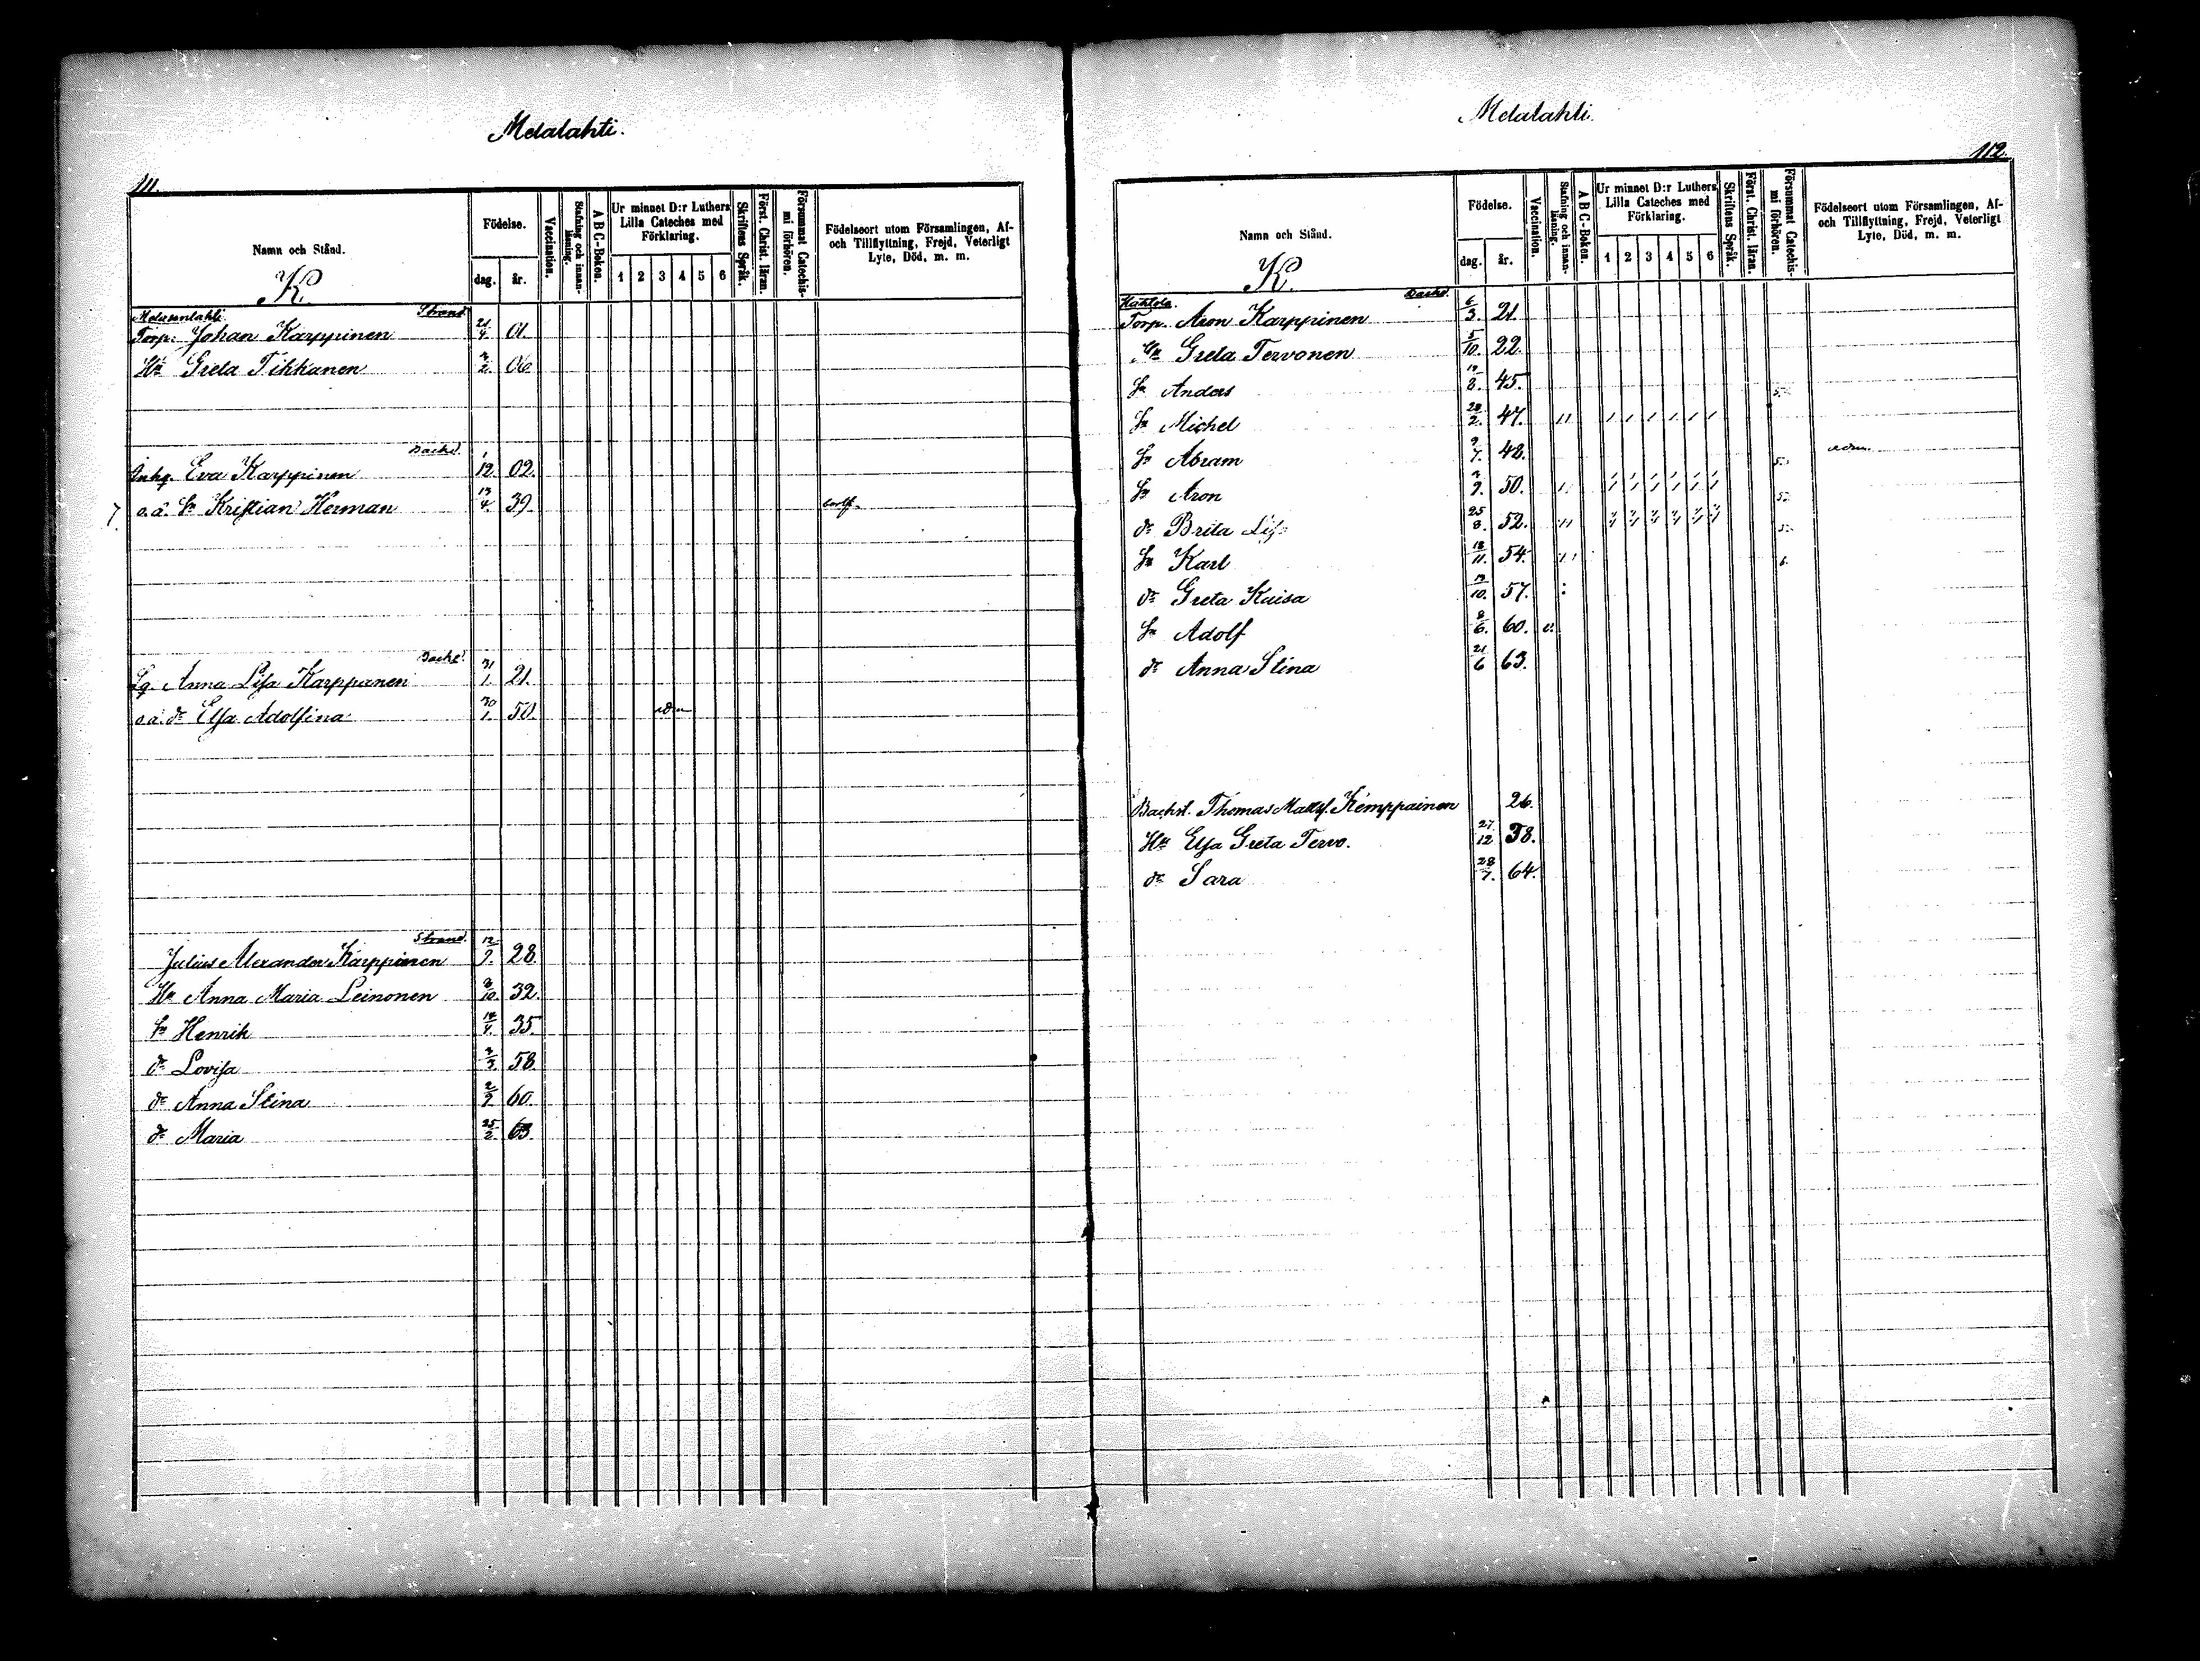 Melalahti.
111.
Namn och Stånd.
K.
Födelse.
dag.
år.
Vaccination.
Stafning och innanläsning.
A B C-Boken.
Ur minnet D:r Luthers Lilla Cateches med Förklaring.
1 2 3 4 5 6
Skriftens Språk.
Först. Christ. läran.
Försummat Catechismi förhören.
Födelseort utom Församlingen, Af- och Tillflyttning, Frejd, Veterligt Lyte, Död, m. m.
Strand
Torp. Johan Karppinen 21/4. 01.
Hu Greta Tikkanen 06.
Backst.
Inhq. Eva Karppinen 1/12. 02.
o.ä. Sn Kristian Herman 13/4. 39.
Backst.
Lq. Anna Lisa Karppanen 31/1. 21.
o.ä. dr Elsa Adolfina 30/1. 50.
Strand.
Julius Alexander Karppinen 12/9. 28.
Hu Anna Maria Leinonen 32.
Sn Henrik 35.
dr Lovisa 58.
dr Anna Stina 60.
dr Maria 25/2. 63.
Melalahti.
112.
Namn och Stånd.
K.
Födelse.
dag.
år.
Vaccination.
Stafning och innanläsning.
A B C-Boken.
Ur minnet D:r Luthers Lilla Cateches med Förklaring.
1 2 3 4 5 6
Skriftens Språk.
Först. Christ. läran.
Försummat Catechismi förhören.
Födelseort utom Församlingen, Af- och Tillflyttning, Frejd, Veterligt Lyte, Död, m. m.
Backst.
Torp. Aron Karppinen 6/3. 21.
Hu Greta Tervonen 5/10. 22.
Sn Anders 45.
Sn Michel 47.
Sn Abram 48.
Sn Aron 50.
dr Brita Lisa 25/8. 52.
Sn Karl 18/11. 54.
dr Greta Kaisa 57.
Sn Adolf 8/6. 60.
dr Anna Stina 21/6 63.
Backst. Thomas Matts. Kemppainen 26.
Hu Elsa Greta Tervo. 27/12 38.
dr Sara 28/7. 64.